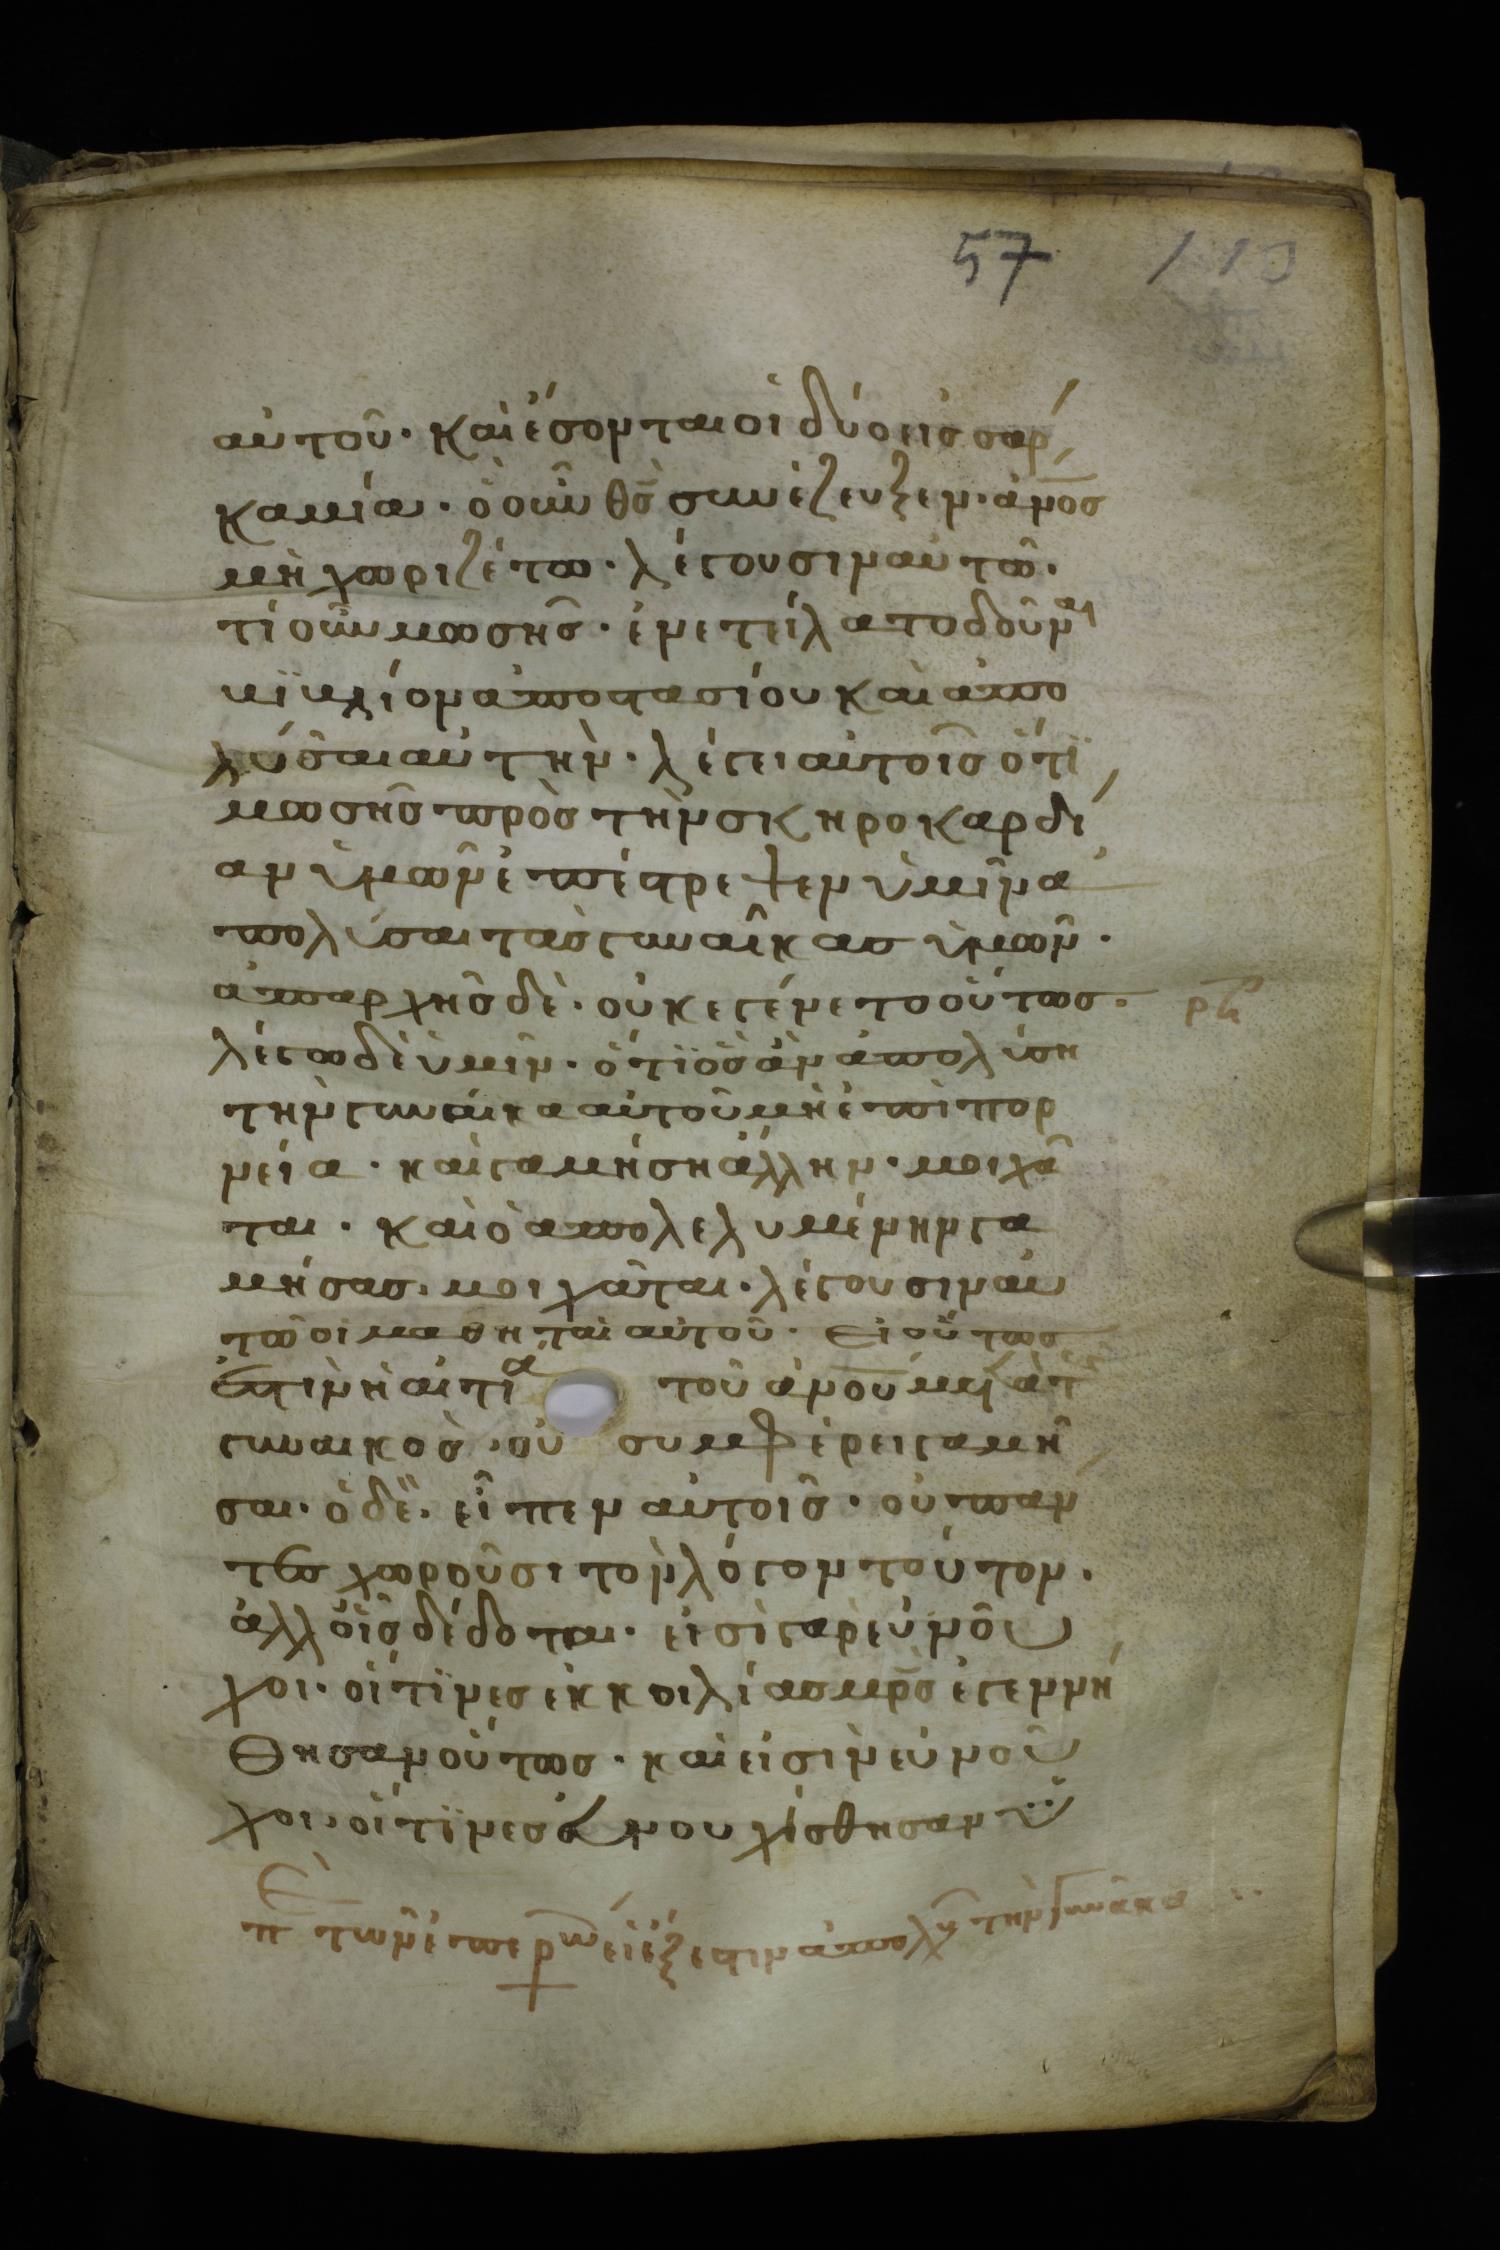 57 113
αὐτοῦ· καὶ ἔσονται οἱ δύο εἰς σάρ
κα μίαν· ὁ οὖν θς συνέζευξεν· ἀνος
μὴ χωριζέτω· λέγουσιν αὐτῶ·
τί οὖν μωσῆς· ἐνετείλατο δοῦναι
βϊβλίον ἀποστασίου καὶ ἀπο
λύσαι αὐτήν· λέγει αὐτοῖς ὅτϊ
μωσῆς πρὸς τὴν σκληροκαρδί
αν ὑμῶν ἐπέστρεψεν ὑμῖν ἀ
πολύσαι τὰς γυναῖκας ὑμῶν·
ἀπαρχῆς δὲ· οὐκ εγένετο οὕτως·
λέγω δὲ ὑμῖν· ὅτϊ ὃς ἂν ἀπολύση
τὴν γυναίκα αὐτοῦ μὴ ἐπὶ πορ
νεία· καὶ γαμήση ἄλλην· μοιχᾶ
ται· καὶ ὁ απολελυμένην γα
μήσας· μοιχᾶται· λέγουσιν αὐ
τῶ οἱ μαθηταὶ αὐτοῦ· Εἰ οὕτως
ἐστὶν ἡ αἰτία τοῦ ἀνου μετὰ τ
γυναικὸς· οὐ συμφέρει γαμῆ
σαι· ὁ δὲ· εἶπεν αὐτοῖς· οὐ πάν
τες χωροῦσι τὸν λόγον τούτον·
ἀλλ οἷς δέδοται· εἰσὶ γὰρ εὐνοῦ
χοι· οἵτϊνες ἐκ κοιλίας μρς ἐγεννή
θησαν οὕτως· καὶ εἰσὶν εὐνοῦ
χοι· οἵτϊνες εὐνουχίσθησαν ὑ